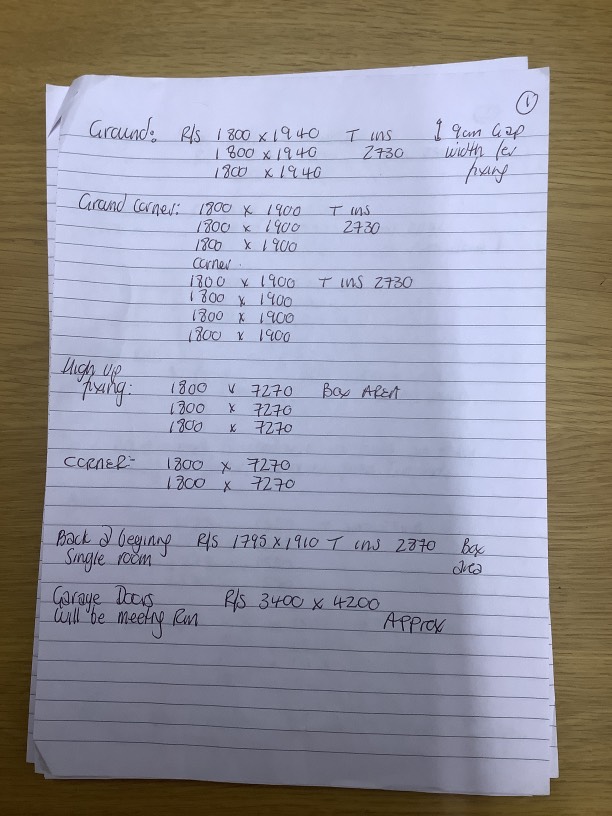 ①
Ground: R/s 1800 x 1940 T ins ↕ 9cm Gap
1800 x 1940 2730 width for
1800 x 1940 fixing
Ground corner: 1800 x 1900 T ins
1800 x 1900 2730
1800 x 1900
corner.
1800 x 1900 T ins 2730
1800 x 1900
1800 x 1900
1800 x 1900
High up
fixing: 1800 x 7270 Box AREA
1800 x 7270
1800 x 7270
CORNER:- 1800 x 7270
1800 x 7270
Back @ beginning R/s 1795 x 1910 T ins 2870 Box
Single room area
Garage Doors R/s 3400 x 4200
will be meeting Run Approx